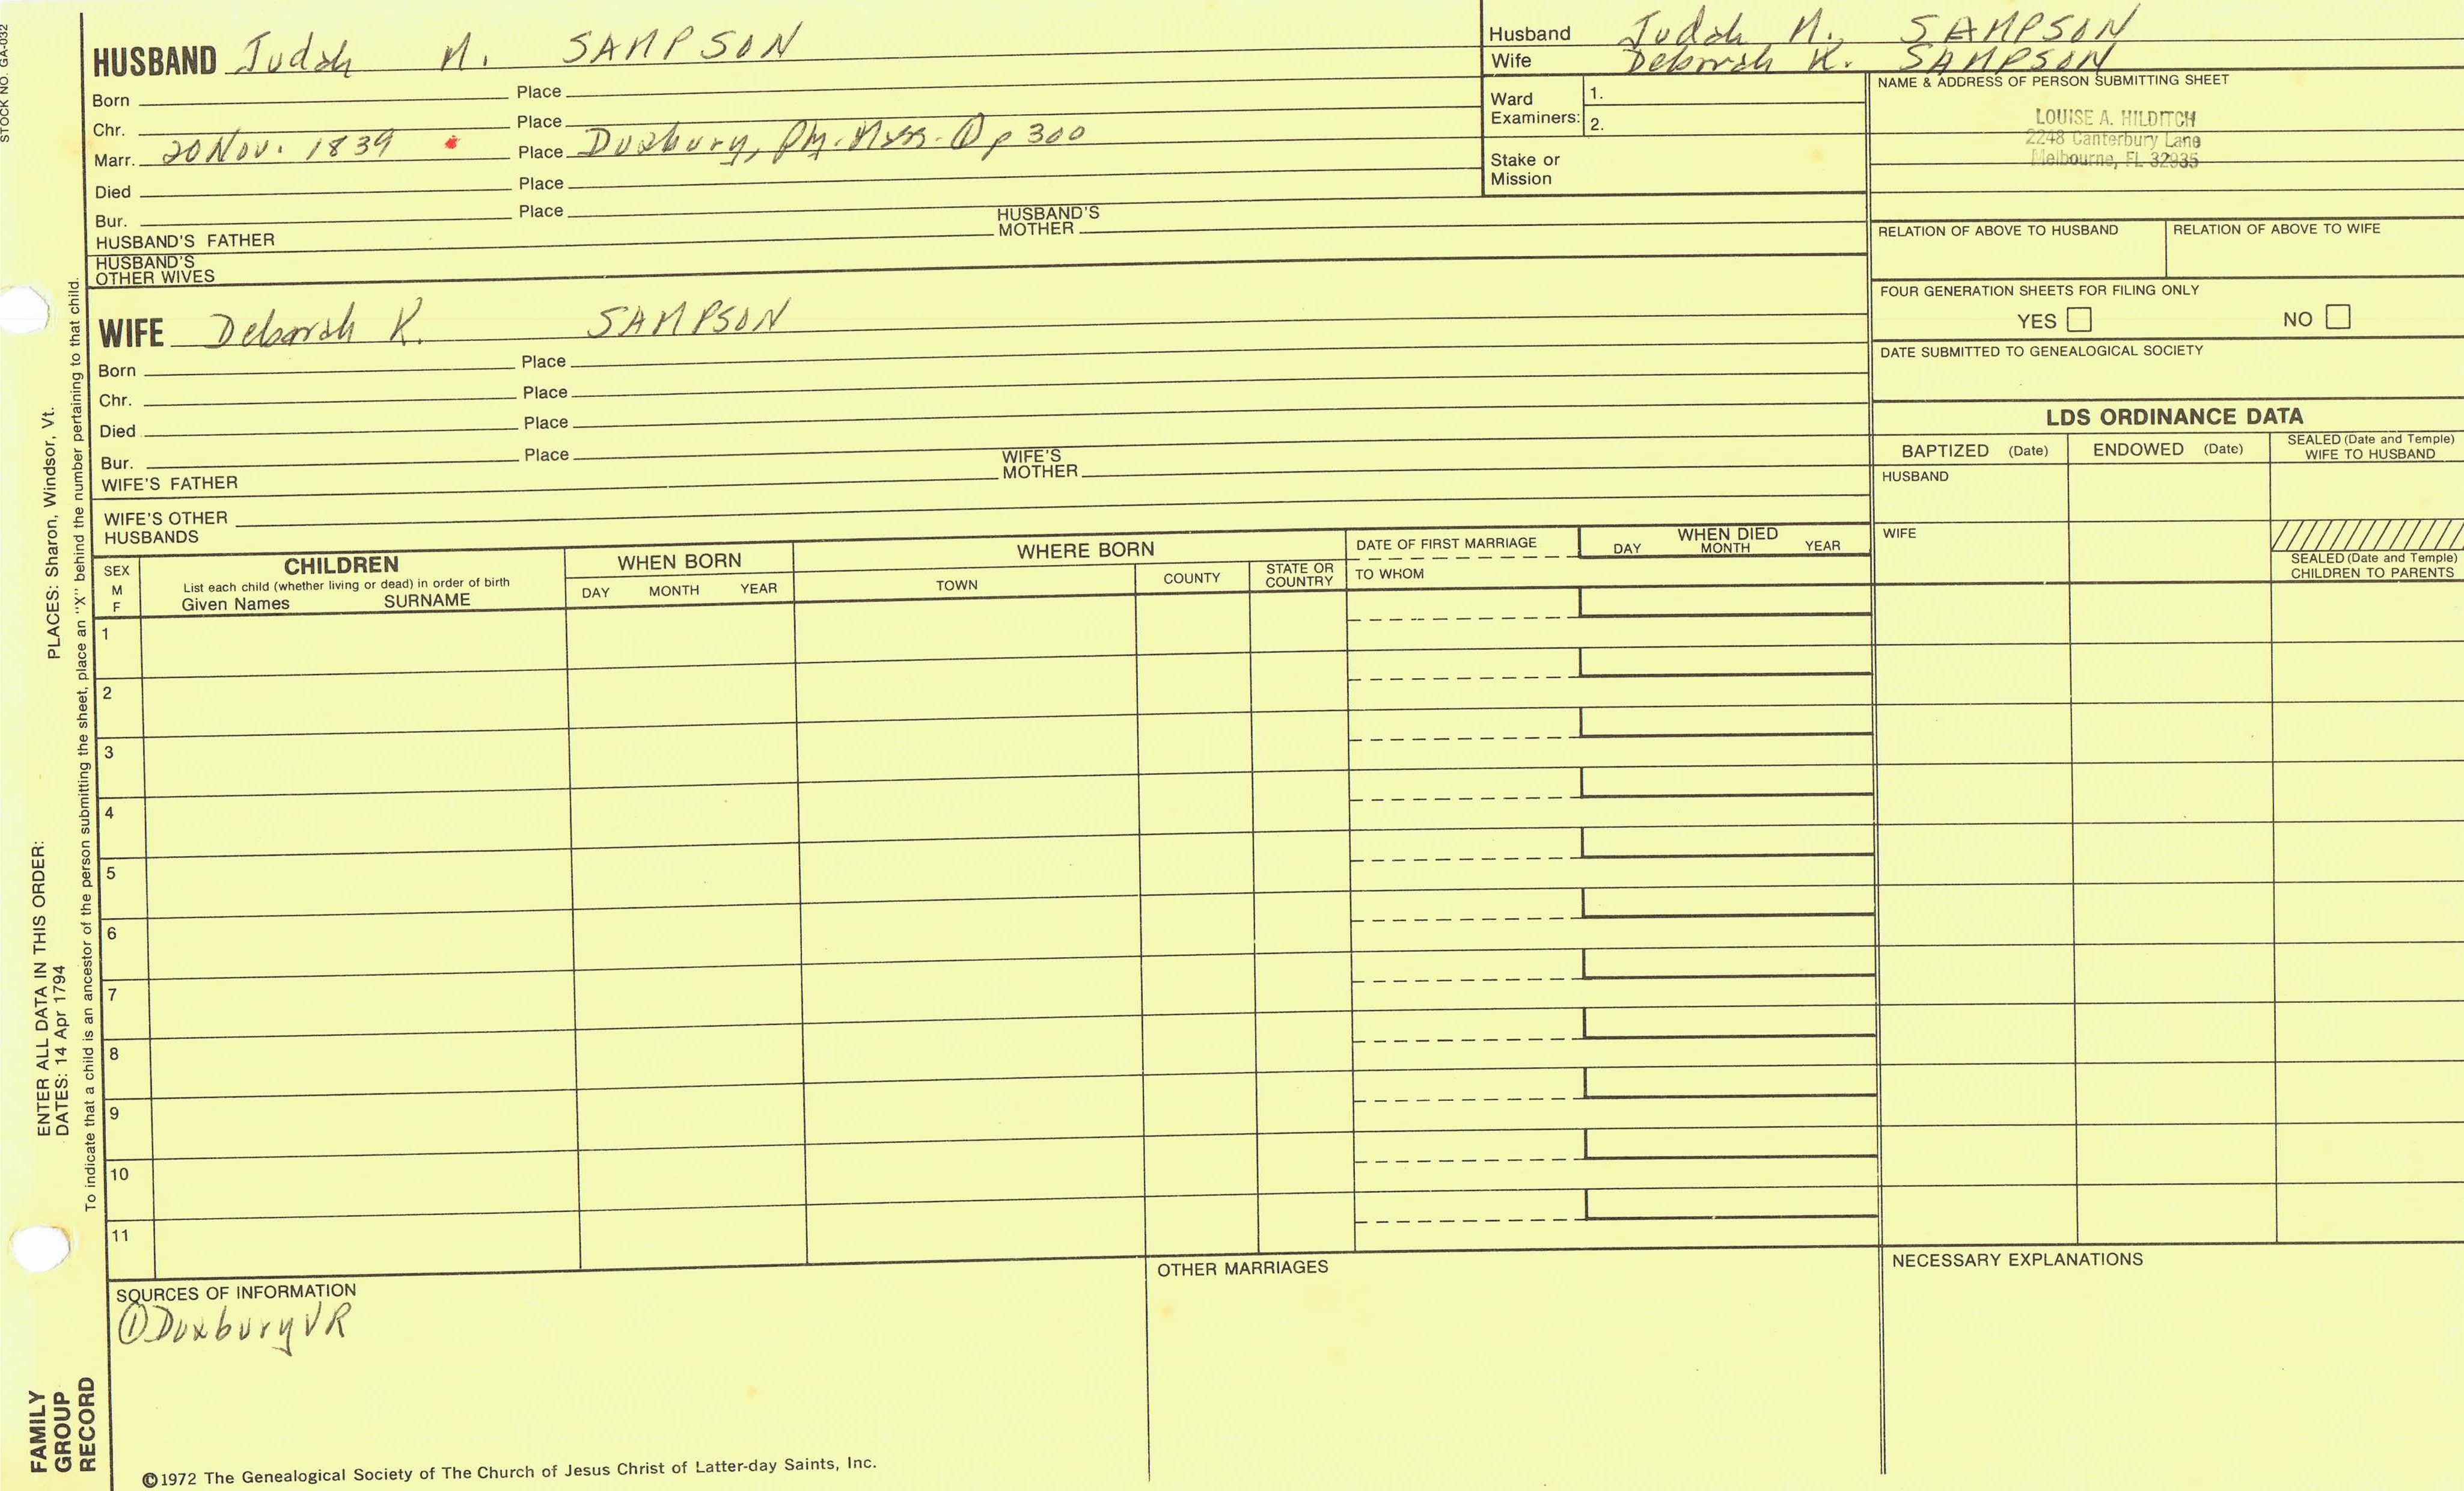 STOCK NO. GA-032
HUSBAND Judah M. SAMPSON
Born Place
Chr. Place
Marr. 20 Nov. 1839 * Place Duxbury, Ply. Mass. ① p 300
Died Place
Bur. Place
HUSBAND'S FATHER HUSBAND'S MOTHER
HUSBAND'S OTHER WIVES
WIFE Deborah K. SAMPSON
Born Place
Chr. Place
Died Place
Bur. Place
WIFE'S FATHER WIFE'S MOTHER
WIFE'S OTHER HUSBANDS
Husband Judah M. SAMPSON
Wife Deborah K. SAMPSON
Ward Examiners: 1.
2.
Stake or Mission
NAME & ADDRESS OF PERSON SUBMITTING SHEET
LOUISE A. HILDITCH
2248 Canterbury Lane
Melbourne, FL 32935
RELATION OF ABOVE TO HUSBAND RELATION OF ABOVE TO WIFE
FOUR GENERATION SHEETS FOR FILING ONLY
YES NO
DATE SUBMITTED TO GENEALOGICAL SOCIETY
LDS ORDINANCE DATA
BAPTIZED (Date) ENDOWED (Date) SEALED (Date and Temple) WIFE TO HUSBAND
HUSBAND
WIFE
SEALED (Date and Temple) CHILDREN TO PARENTS
SEX M F
CHILDREN
List each child (whether living or dead) in order of birth
Given Names SURNAME
WHEN BORN
DAY MONTH YEAR
WHERE BORN
TOWN COUNTY STATE OR COUNTRY
DATE OF FIRST MARRIAGE
TO WHOM
WHEN DIED
DAY MONTH YEAR
1
2
3
4
5
6
7
8
9
10
11
SOURCES OF INFORMATION
① Duxbury VR
OTHER MARRIAGES
NECESSARY EXPLANATIONS
©1972 The Genealogical Society of The Church of Jesus Christ of Latter-day Saints, Inc.
FAMILY GROUP RECORD
ENTER ALL DATA IN THIS ORDER:
DATES: 14 Apr 1794
PLACES: Sharon, Windsor, Vt.
To indicate that a child is an ancestor of the person submitting the sheet, place an "X" behind the number pertaining to that child.